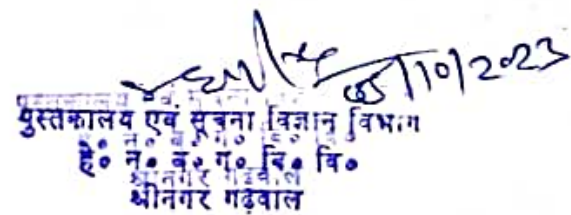 05/10/2023
पुस्तकालय एवं सूचना विज्ञान विभाग
हे० न० ब० ग० वि० वि०
श्रीनगर गढ़वाल